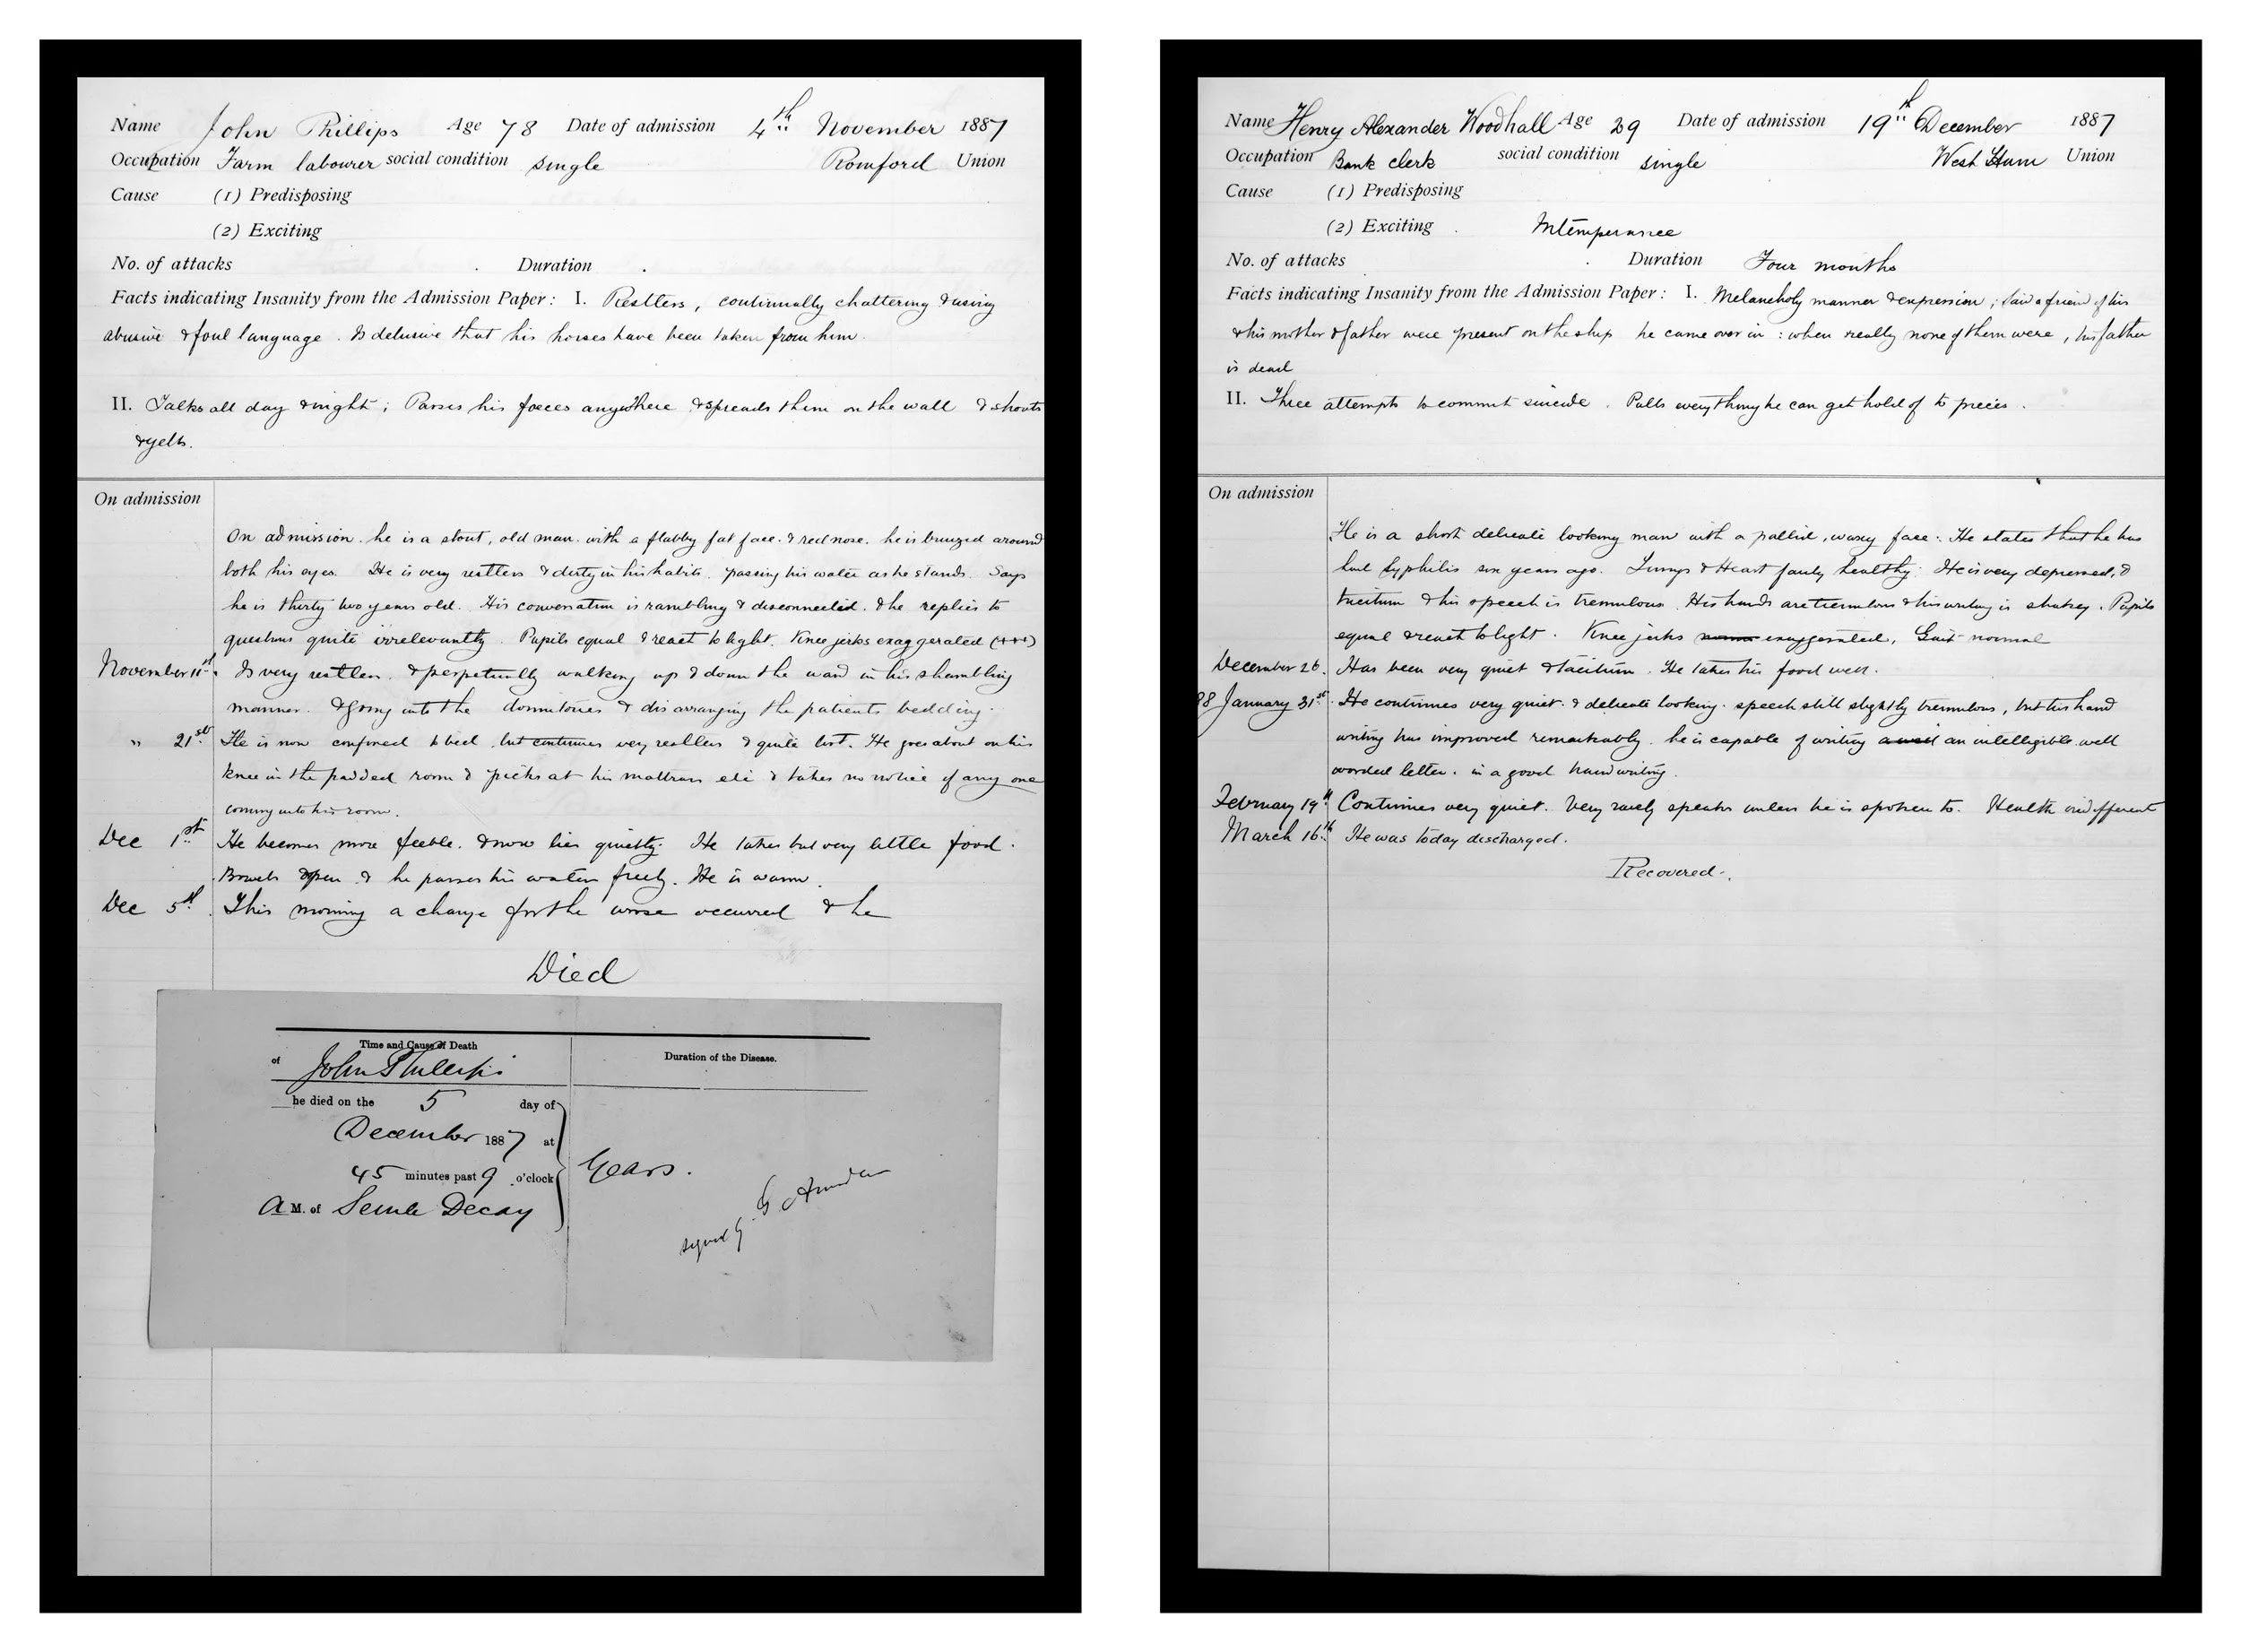 Name John Phillips Age 78 Date of admission 4th November 1887
Occupation Farm labourer social condition single Romford Union
Cause (1) Predisposing
(2) Exciting
No. of attacks . Duration .
Facts indicating Insanity from the Admission Paper : I. Restless, continually chattering & using
abusive & foul language. Is delusive that his horses have been taken from him.
II. Talks all day & night ; Passes his foeces anywhere & spreads them on the wall & shouts
& yells.
On admission
On admission. he is a stout, old man. with a flabby fat face. & red nose. he is bruized around
both his eyes. He is very restless & dirty in his habits. passing his water as he stands. Says
he is thirty two years old. His conversation is rambling & disconnected. & he replies to
questions quite irrelevantly. Pupils equal & react to light. Knee jerks exaggerated (+++)
November 11th. Is very restless. & perpetually walking up & down the ward in his shambling
manner. & going into the dormitories & disarranging the patients bedding.
" 21st. He is now confined to bed, but continues very restless & quite lost. He goes about on his
knee in the padded room & picks at his mattress etc & takes no notice of any one
coming into his room.
Dec 1st. He becomes more feeble. & now lies quietly. He takes but very little food.
Bowels open & he passes his water freely. He is warm.
Dec 5th. This morning a change for the worse occurred & he
Died
Time and Cause of Death
of John Phillips
he died on the 5 day of
December 1887 at
45 minutes past 9 o'clock
A M. of Senile Decay
Duration of the Disease.
Years.
signed G Amsden
Name Henry Alexander Woodhall Age 29 Date of admission 19th December 1887
Occupation Bank clerk social condition single West Ham Union
Cause (1) Predisposing
(2) Exciting . Intemperance
No. of attacks . Duration Four months
Facts indicating Insanity from the Admission Paper : I. Melancholy manner & expression ; Said a friend of his
& his mother & father were present on the ship he came over in : when really none of them were, his father
is dead
II. Three attempts to commit suicide. Pulls everything he can get hold of to pieces.
On admission
He is a short delicate looking man with a pallid, waxy face. He states that he has
had syphilis six years ago. Lungs & Heart fairly healthy. He is very depressed, &
taciturn & his speech is tremulous. His hands are tremulous & his writing is shakey. Pupils
equal & react to light. Knee jerks normal exaggerated, Gait normal
December 26. Has been very quiet & taciturn. He takes his food well.
88 January 31st. He continues very quiet. & delicate looking. speech still slightly tremulous, but his hand
writing has improved remarkably. he is capable of writing an intelligible well
worded letter. in a good handwriting.
February 19th. Continues very quiet. Very rarely speaks unless he is spoken to. Health indifferent
March 16th. He was today discharged.
Recovered.